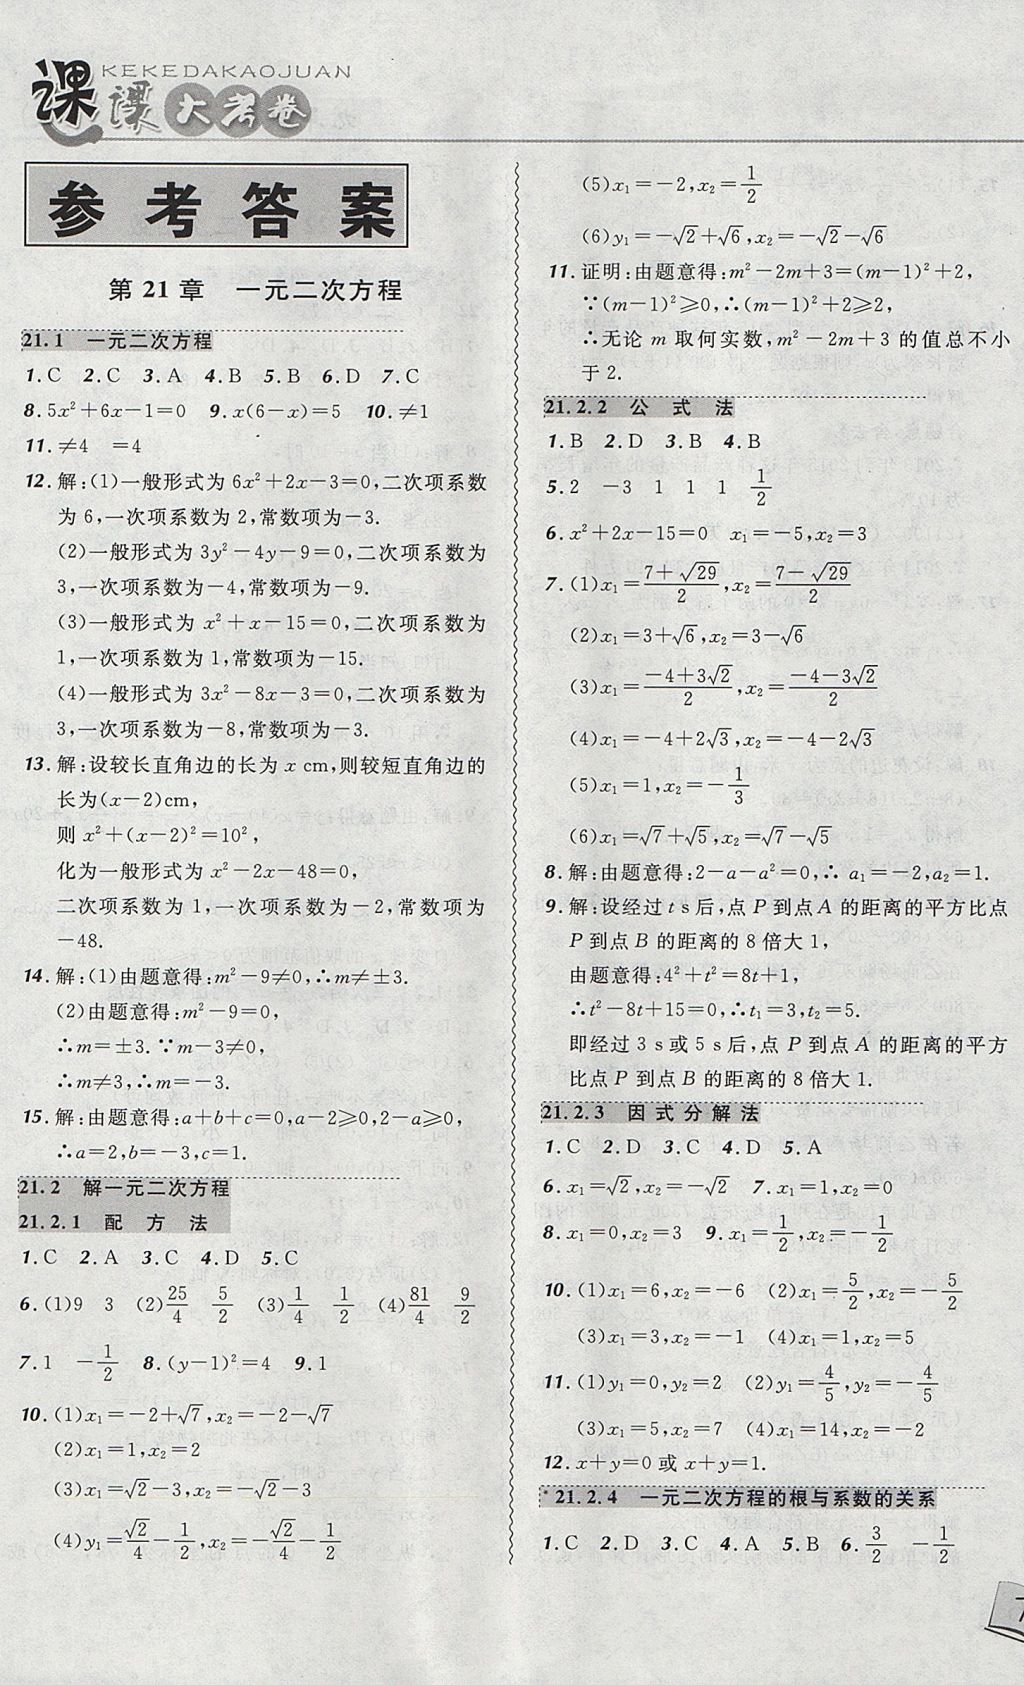 KEKEDAKAOJUAN
课课大考卷
参考答案
第21章 一元二次方程
21.1 一元二次方程
1.C 2.C 3.A 4.B 5.B 6.D 7.C
8.5x²+6x-1=0 9.x(6-x)=5 10.≠1
11.≠4 =4
12.解:(1)一般形式为6x²+2x-3=0,二次项系数
为6,一次项系数为2,常数项为-3.
(2)一般形式为3y²-4y-9=0,二次项系数为
3,一次项系数为-4,常数项为-9.
(3)一般形式为x²+x-15=0,二次项系数为
1,一次项系数为1,常数项为-15.
(4)一般形式为3x²-8x-3=0,二次项系数为
3,一次项系数为-8,常数项为-3.
13.解:设较长直角边的长为x cm,则较短直角边的
长为(x-2)cm,
则x²+(x-2)²=10²,
化为一般形式为x²-2x-48=0,
二次项系数为1,一次项系数为-2,常数项为
-48.
14.解:(1)由题意得:m²-9≠0,∴m≠±3.
(2)由题意得:m²-9=0,
∴m=±3.∵m-3≠0,
∴m≠3,∴m=-3.
15.解:由题意得:a+b+c=0,a-2≥0,2-a≥0,
∴a=2,b=-3,c=1.
21.2 解一元二次方程
21.2.1 配方法
1.C 2.A 3.C 4.D 5.C
6.(1)9 3 (2)25/4 5/2 (3)1/4 1/2 (4)81/4 9/2
7.1 -1/2 8.(y-1)²=4 9.1
10.(1)x₁=-2+√7,x₂=-2-√7
(2)x₁=1,x₂=2
(3)x₁=√2-3,x₂=-√2-3
(4)y₁=√2/4-1/2,x₂=-√2/4-1/2
(5)x₁=-2,x₂=1/2
(6)y₁=-√2+√6,x₂=-√2-√6
11.证明:由题意得:m²-2m+3=(m-1)²+2,
∵(m-1)²≥0,∴(m-1)²+2≥2,
∴无论m取何实数,m²-2m+3的值总不小
于2.
21.2.2 公式法
1.B 2.D 3.B 4.B
5.2 -3 1 1 1 1/2
6.x²+2x-15=0 x₁=-5,x₂=3
7.(1)x₁=(7+√29)/2,x₂=(7-√29)/2
(2)x₁=3+√6,x₂=3-√6
(3)x₁=(-4+3√2)/2,x₂=(-4-3√2)/2
(4)x₁=-4+2√3,x₂=-4-2√3
(5)x₁=1,x₂=-1/3
(6)x₁=√7+√5,x₂=√7-√5
8.解:由题意得:2-a-a²=0,∴a₁=-2,a₂=1.
9.解:设经过t s后,点P到点A的距离的平方比点
P到点B的距离的8倍大1,
由题意得:4²+t²=8t+1,
∴t²-8t+15=0,∴t₁=3,t₂=5.
即经过3 s或5 s后,点P到点A的距离的平方
比点P到点B的距离的8倍大1.
21.2.3 因式分解法
1.C 2.D 3.C 4.D 5.A
6.x₁=√2,x₂=-√2 7.x₁=1,x₂=0
8.x₁=0,x₂=3 9.x₁=1/2,x₂=-1/2
10.(1)x₁=6,x₂=-6 (2)x₁=5/2,x₂=-5/2
(3)x₁=3,x₂=-1 (4)x₁=1,x₂=5
11.(1)y₁=0,y₂=2 (2)y₁=4/5,y₂=-4/5
(3)x₁=5,x₂=7 (4)x₁=14,x₂=-2
12.x+y=0或x+y=1.
*21.2.4 一元二次方程的根与系数的关系
1.C 2.D 3.C 4.A 5.B 6.3/2 -1/2